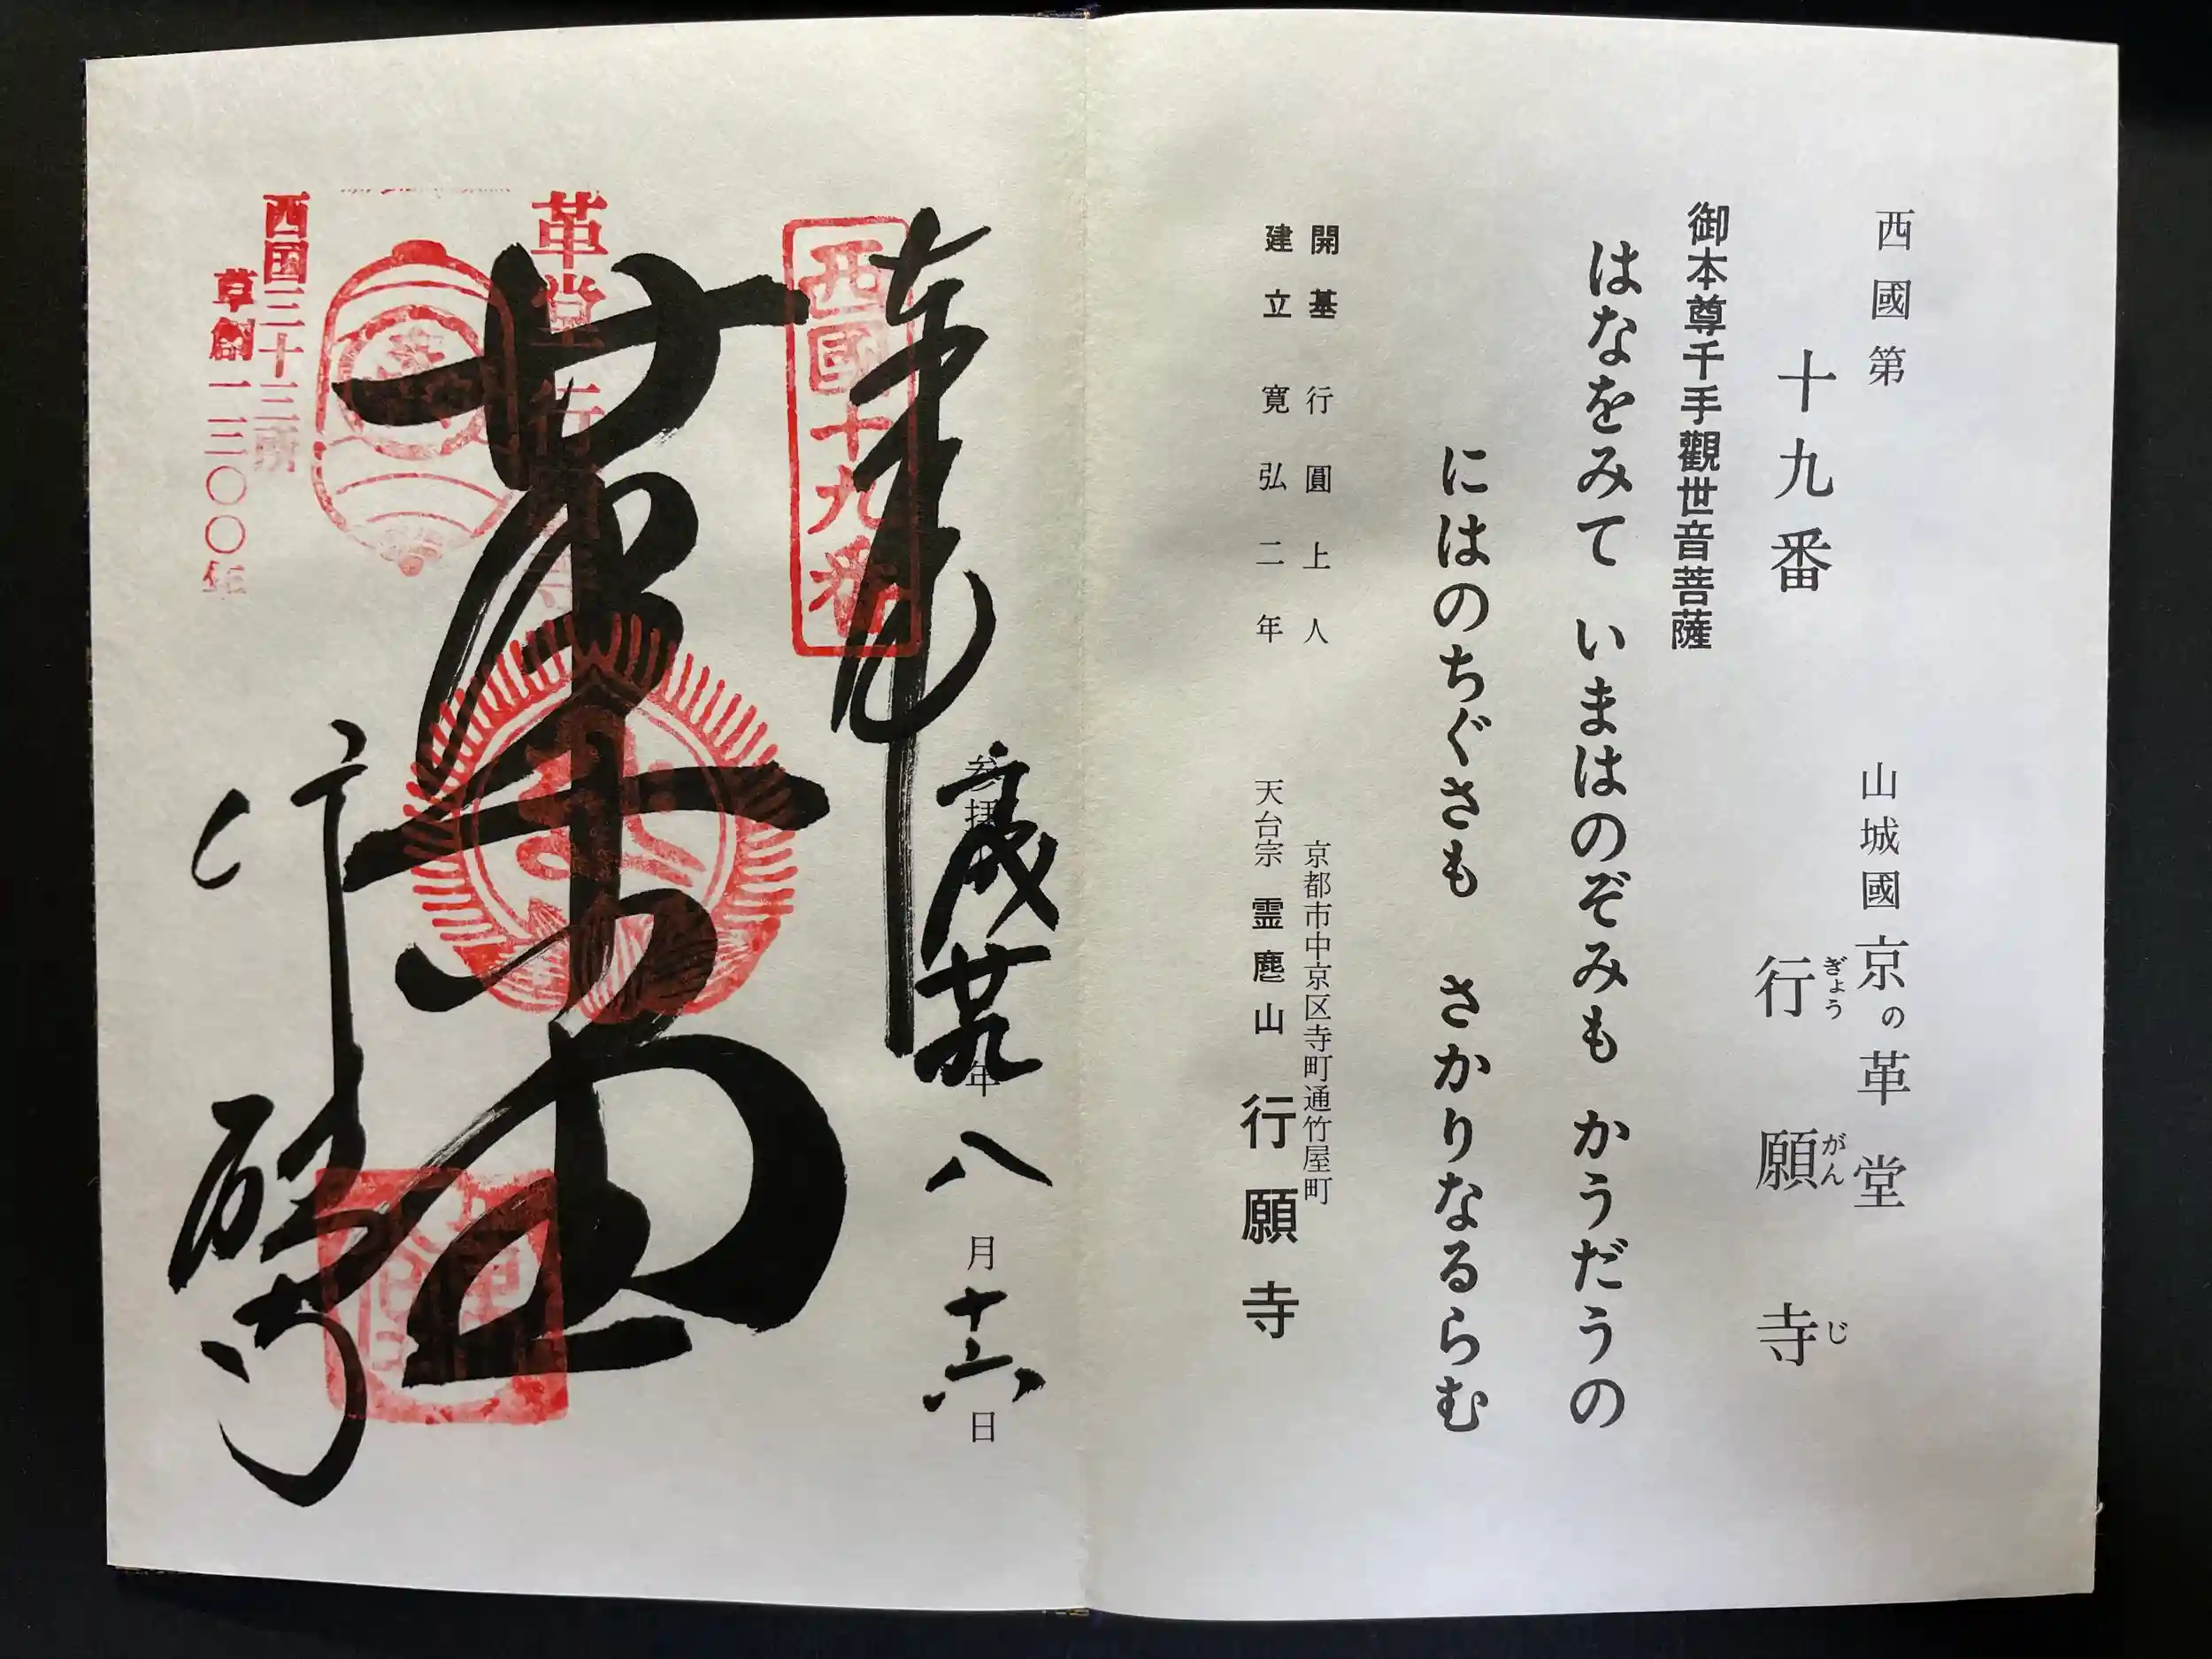 西國第
十九番
山城國京の革堂
行願寺
ぎょうがんじ
御本尊千手觀世音菩薩
はなをみて いまはのぞみも かうだうの
にはのちぐさも さかりなるらむ
開基 行圓上人
建立 寛弘二年
京都市中京区寺町通竹屋町
天台宗 霊麀山 行願寺
奉
西國十九番
平成廿九年八月十六日
革堂 行願寺
革堂
西国三十三所
草創一三〇〇年
行願寺